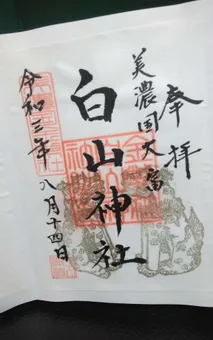 奉拝
美濃国大富
白山神社
令和三年
八月十四日